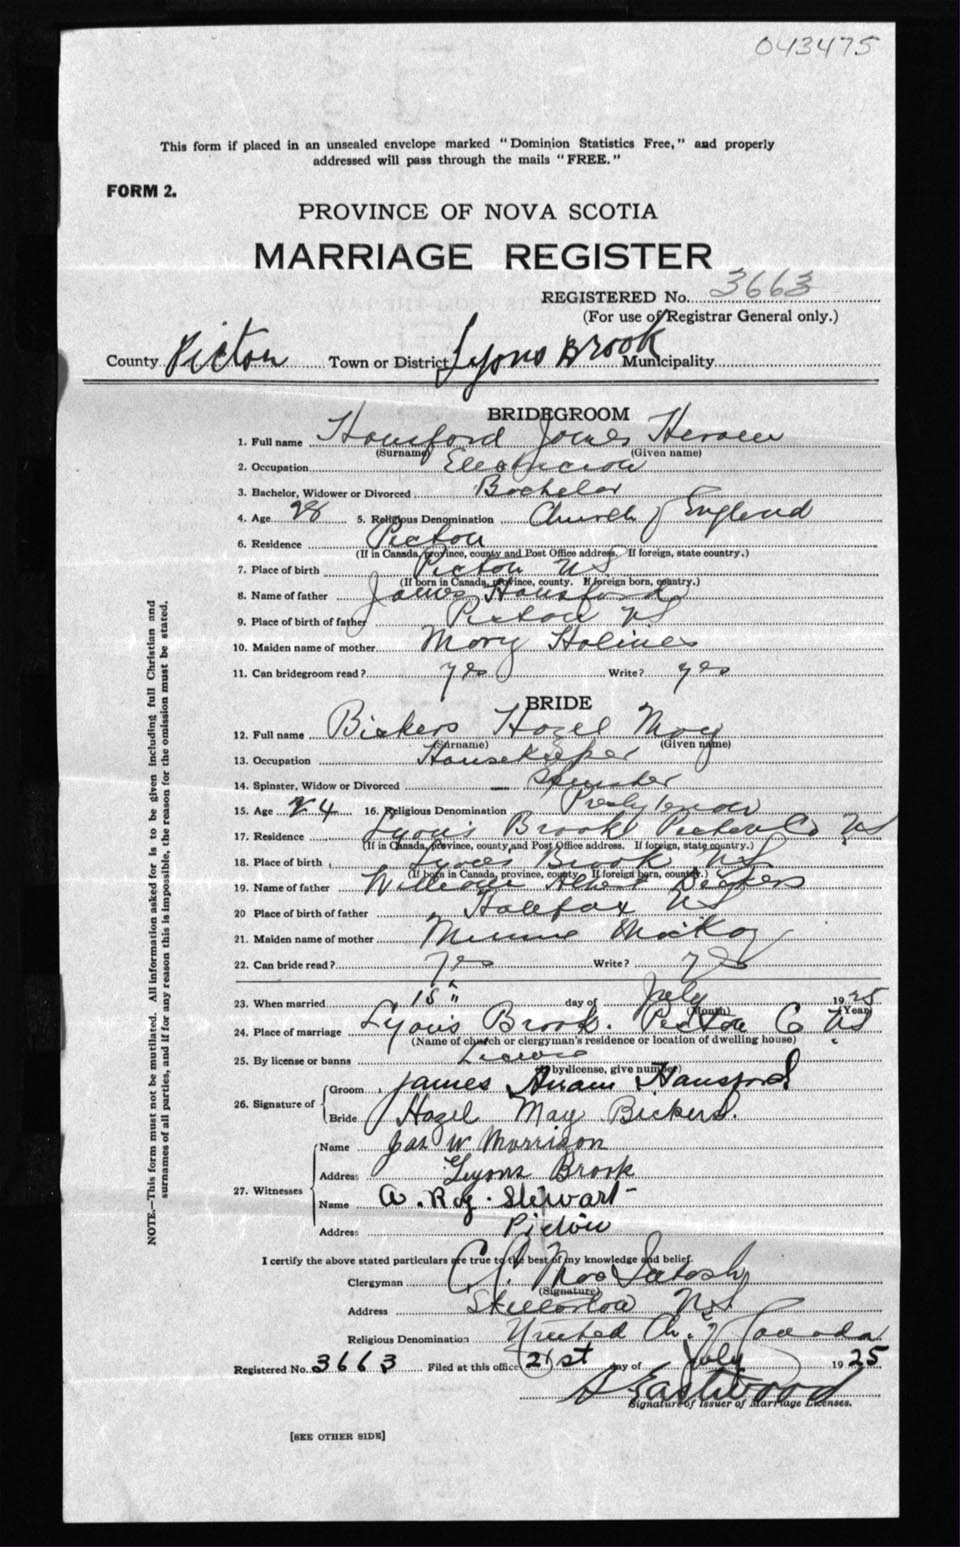 043475
This form if placed in an unsealed envelope marked "Dominion Statistics Free," and properly
addressed will pass through the mails "FREE."
FORM 2.
PROVINCE OF NOVA SCOTIA
MARRIAGE REGISTER
REGISTERED No. 3663
(For use of Registrar General only.)
County Pictou Town or District Lyons Brook Municipality
BRIDEGROOM
1. Full name Hansford James Hiram
(Surname) (Given name)
2. Occupation Electrician
3. Bachelor, Widower or Divorced Bachelor
4. Age 28 5. Religious Denomination Church of England
6. Residence Pictou
(If in Canada, province, county and Post Office address. If foreign, state country.)
7. Place of birth Pictou NS
(If born in Canada, province, county. If foreign born, country.)
8. Name of father James Hansford
9. Place of birth of father Pictou NS
10. Maiden name of mother Mary Holmes
11. Can bridegroom read? yes Write? yes
BRIDE
12. Full name Bickers Hazel May
(Surname) (Given name)
13. Occupation Housekeeper
14. Spinster, Widow or Divorced Spinster
15. Age 24 16. Religious Denomination Presbyterian
17. Residence Lyon's Brook Pictou Co NS
(If in Canada, province, county, and Post Office address. If foreign, state country.)
18. Place of birth Lyons Brook NS
(If born in Canada, province, county. If foreign born, country.)
19. Name of father William Albert Bickers
20 Place of birth of father Halifax NS
21. Maiden name of mother Minnie MacKay
22. Can bride read? yes Write? yes
23. When married 15" day of July 1925
(Month) (Year)
24. Place of marriage Lyon's Brook. Pictou Co NS
(Name of church or clergyman's residence or location of dwelling house)
25. By license or banns License
(If by license, give number)
26. Signature of Groom James Hiram Hansford
Bride Hazel May Bickers.
27. Witnesses Name Jas W Morrison
Address Lyons Brook
Name A. Roy. Stewart
Address Pictou
I certify the above stated particulars are true to the best of my knowledge and belief.
Clergyman MacIntosh
(Signature)
Address Stellarton NS
Religious Denomination United Ch. of Canada
Registered No. 3663 Filed at this office 21st day of July 1925
Eastwood
Signature of Issuer of Marriage Licenses.
[SEE OTHER SIDE]
NOTE.—This form must not be mutilated. All information asked for is to be given including full Christian and
surnames of all parties, and if for any reason this is impossible, the reason for the omission must be stated.